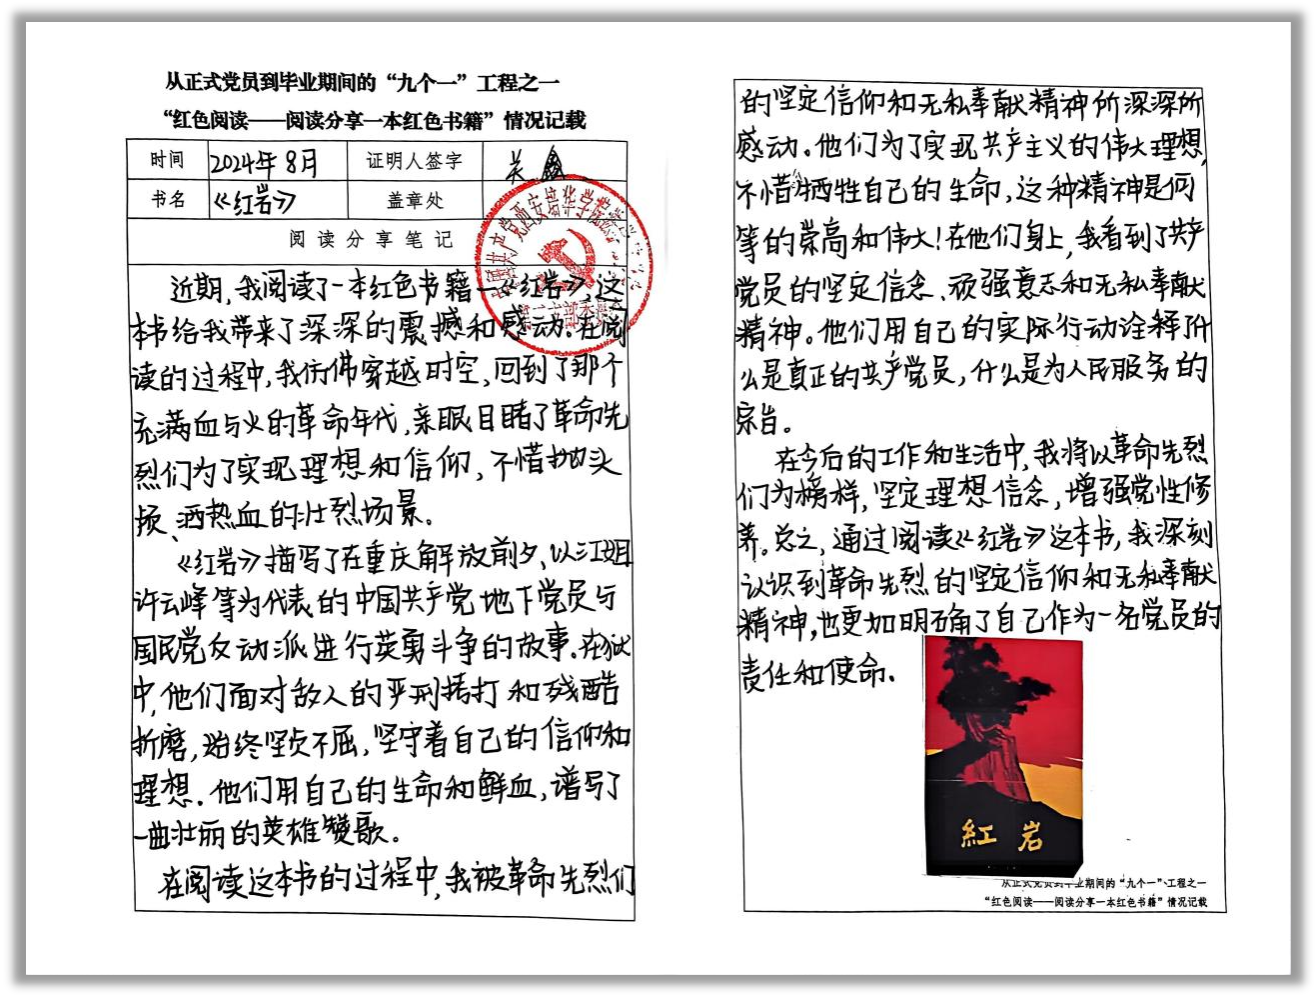 从正式党员到毕业期间的“九个一”工程之一
“红色阅读——阅读分享一本红色书籍”情况记载
时间 2024年8月 证明人签字
书名 《红岩》 盖章处
阅读分享笔记
近期,我阅读了一本红色书籍—《红岩》,这
本书给我带来了深深的震撼和感动.在阅
读的过程中,我仿佛穿越时空,回到了那个
充满血与火的革命年代,亲眼目睹了革命先
烈们为了实现理想和信仰,不惜抛头
颅、洒热血的壮烈场景。
《红岩》描写了在重庆解放前夕,以江姐
许云峰等为代表的中国共产党地下党员与
国民党反动派进行英勇斗争的故事.在狱
中,他们面对敌人的严刑拷打和残酷
折磨,始终坚贞不屈,坚守着自己的信仰和
理想.他们用自己的生命和鲜血,谱写了
一曲壮丽的英雄赞歌。
在阅读这本书的过程中,我被革命先烈们
的坚定信仰和无私奉献精神所深深所
感动.他们为了实现共产主义的伟大理想,
不惜牺牲自己的生命,这种精神是何
等的崇高和伟大!在他们身上,我看到了共产
党员的坚定信念、顽强意志和无私奉献
精神。他们用自己的实际行动诠释了什
么是真正的共产党员,什么是为人民服务的
宗旨。
在今后的工作和生活中,我将以革命先烈
们为榜样,坚定理想信念,增强党性修
养。总之,通过阅读《红岩》这本书,我深刻
认识到革命先烈的坚定信仰和无私奉献
精神,也更加明确了自己作为一名党员的
责任和使命.
紅岩
从正式党员到毕业期间的“九个一”工程之一
“红色阅读——阅读分享一本红色书籍”情况记载